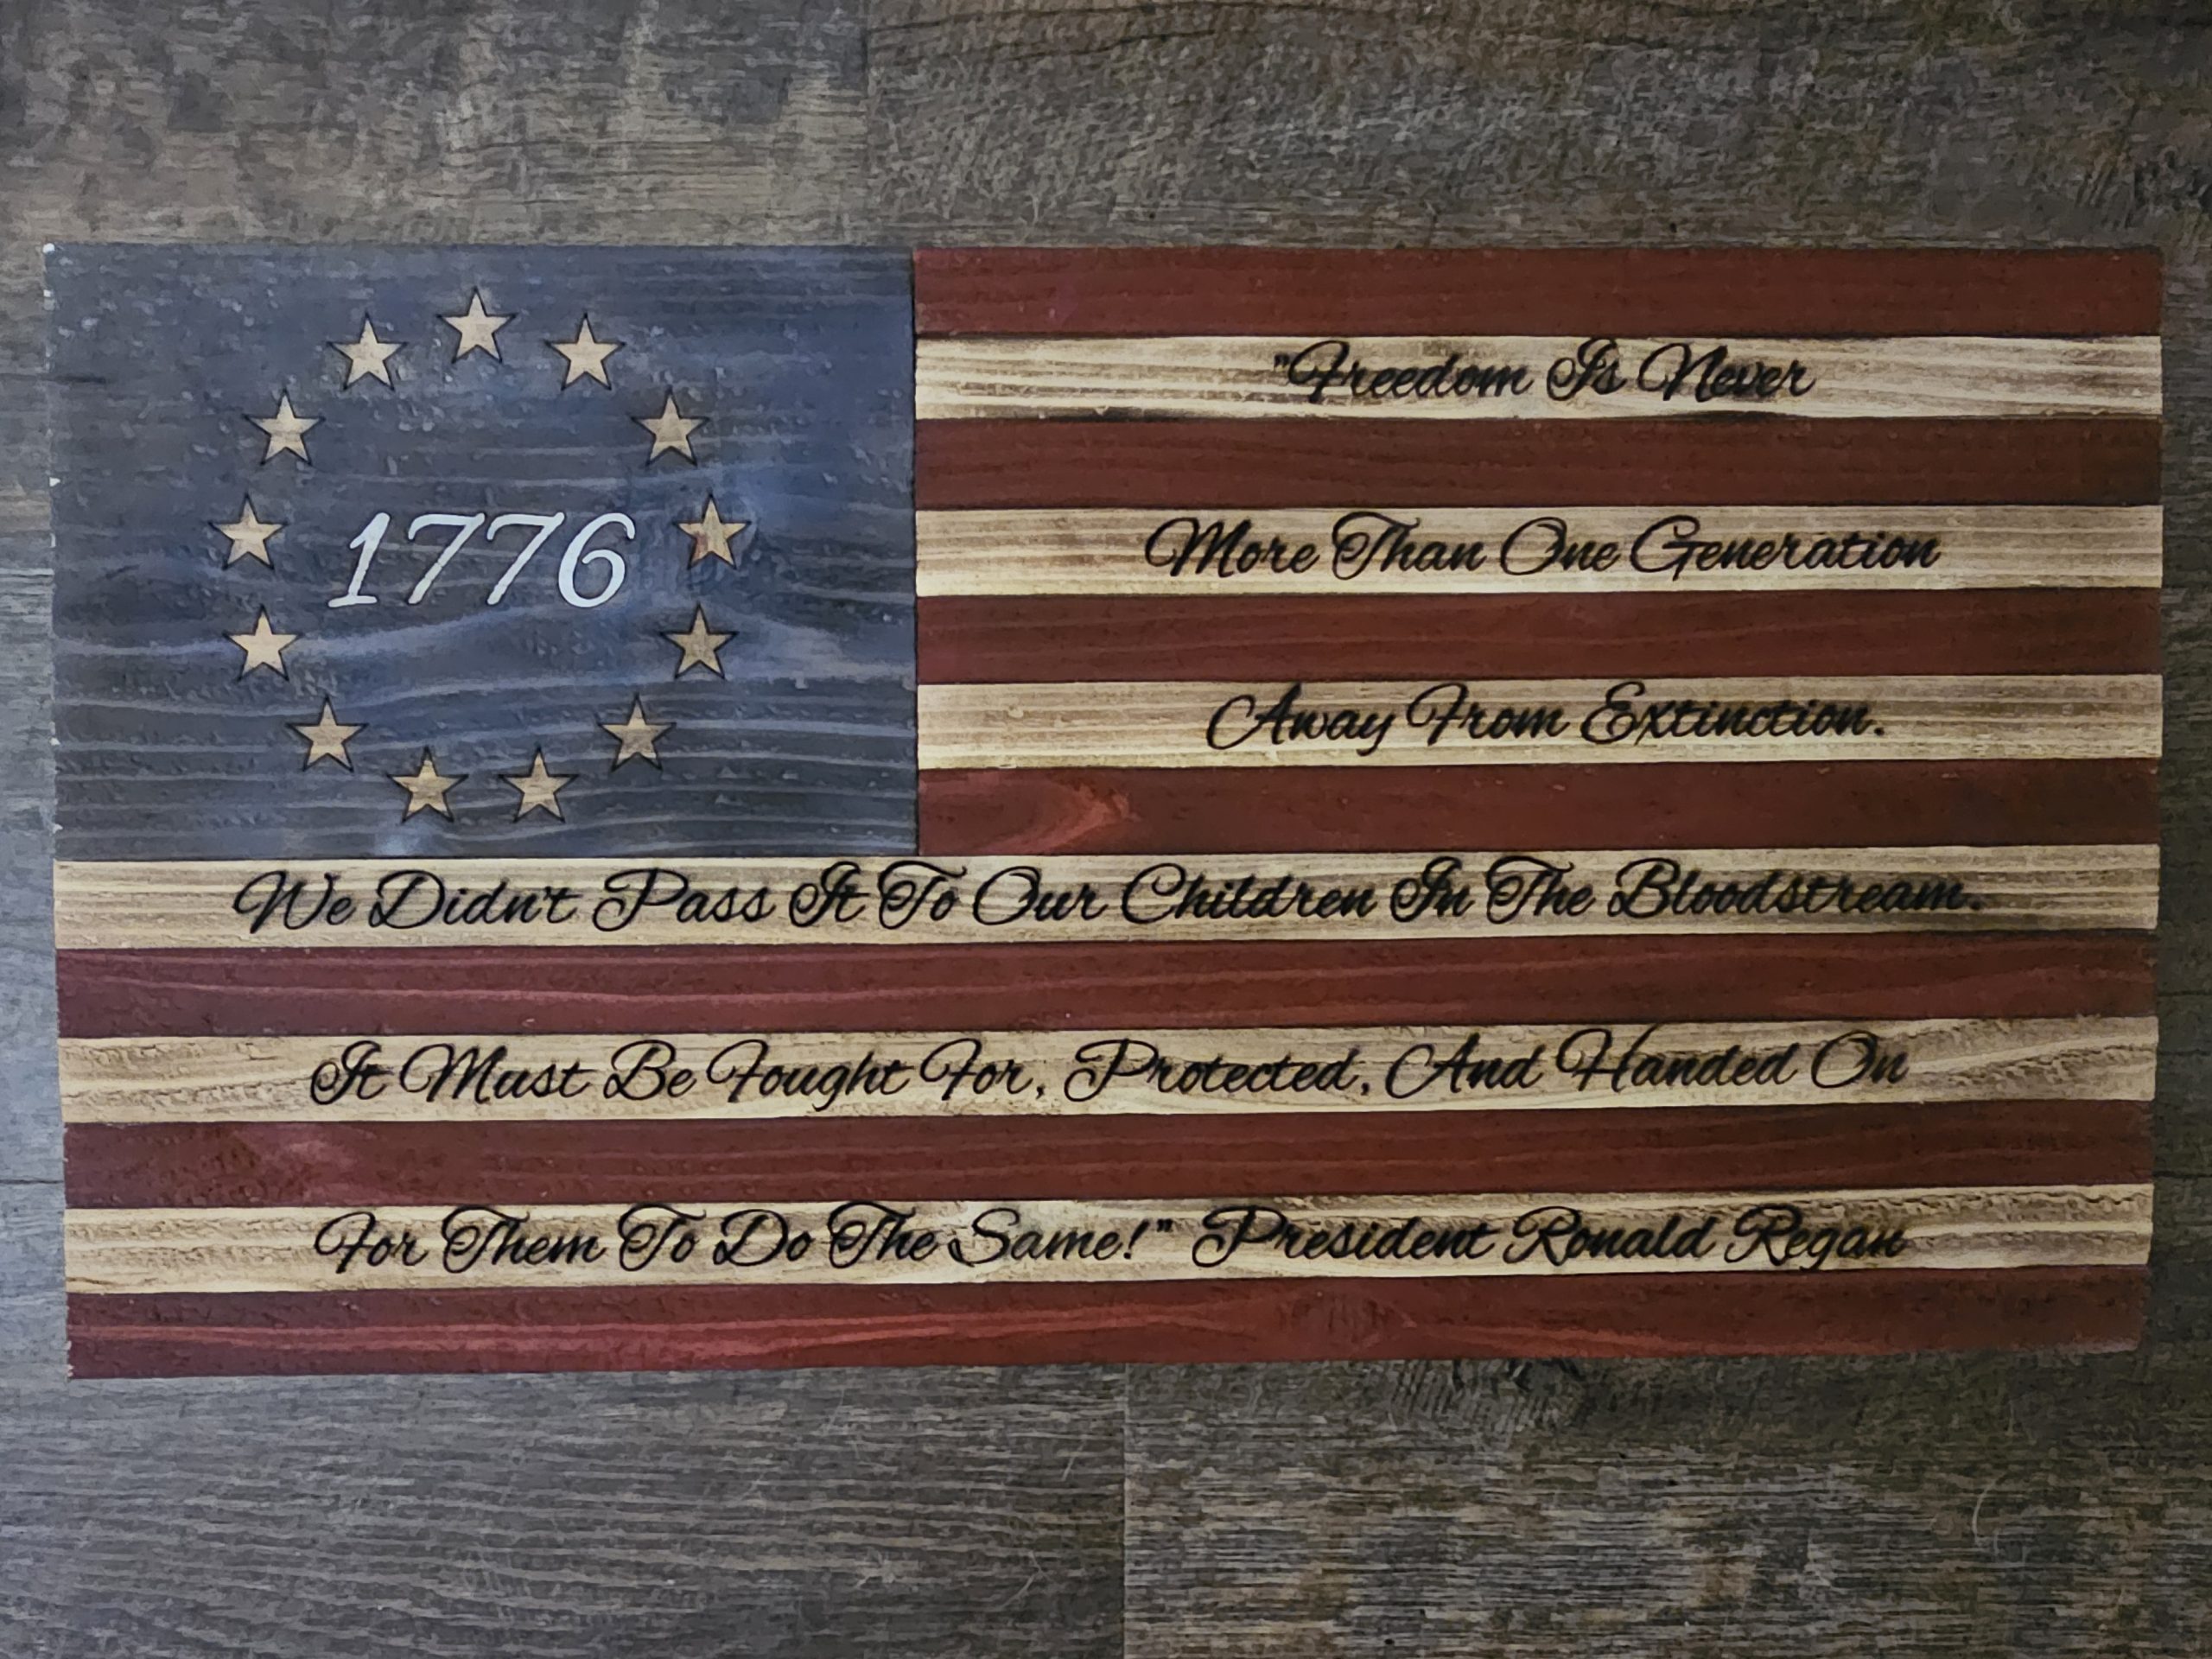 1776
"Freedom Is Never
More Than One Generation
Away From Extinction.
We Didn't Pass It To Our Children In The Bloodstream.
It Must Be Fought For, Protected, And Handed On
For Them To Do The Same!" President Ronald Regan